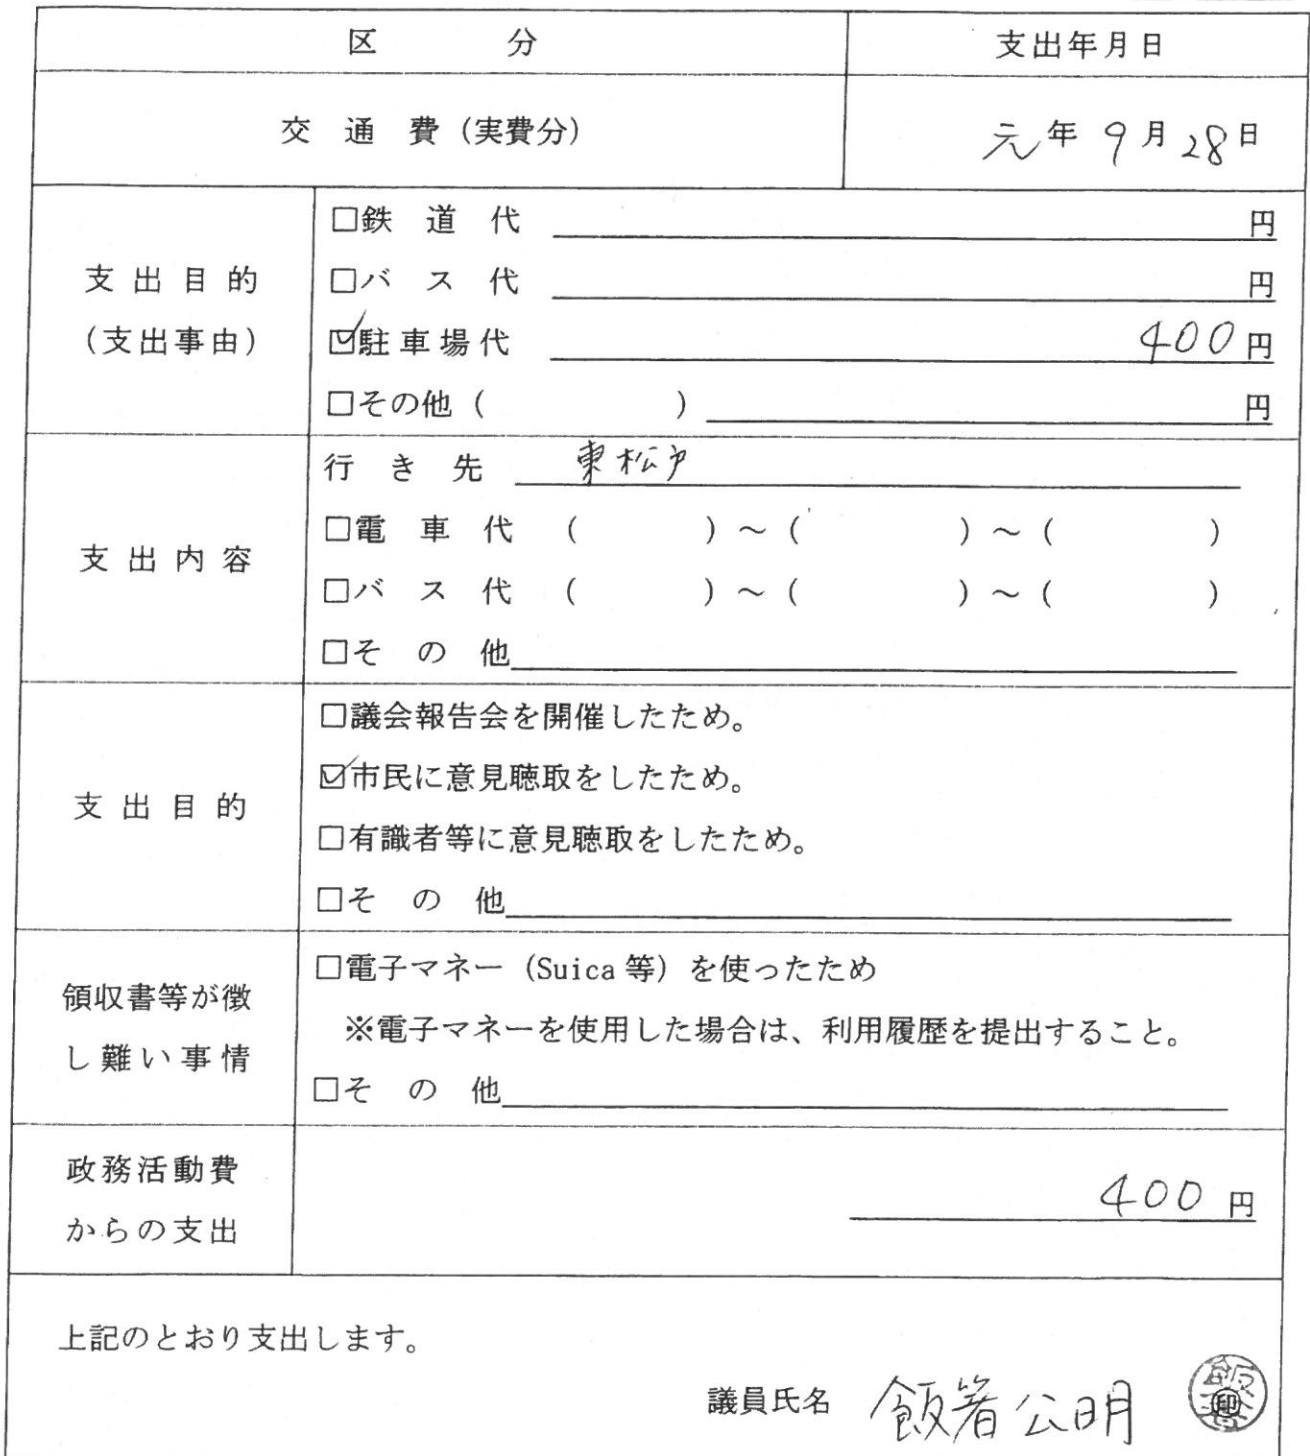 区　分　支出年月日
交　通　費（実費分）　元年 9月28日
支出目的
（支出事由）
□鉄　道　代　円
□バ　ス　代　円
☑駐車場代　400円
□その他（　　　　）　円
支出内容
行　き　先　東松戸
□電　車　代　（　　　）～（　　　）～（　　　）
□バ　ス　代　（　　　）～（　　　）～（　　　）
□そ　の　他
支出目的
□議会報告会を開催したため。
☑市民に意見聴取をしたため。
□有識者等に意見聴取をしたため。
□そ　の　他
領収書等が徴
し難い事情
□電子マネー（Suica等）を使ったため
※電子マネーを使用した場合は、利用履歴を提出すること。
□そ　の　他
政務活動費
からの支出
400円
上記のとおり支出します。
議員氏名　飯箸公明　印